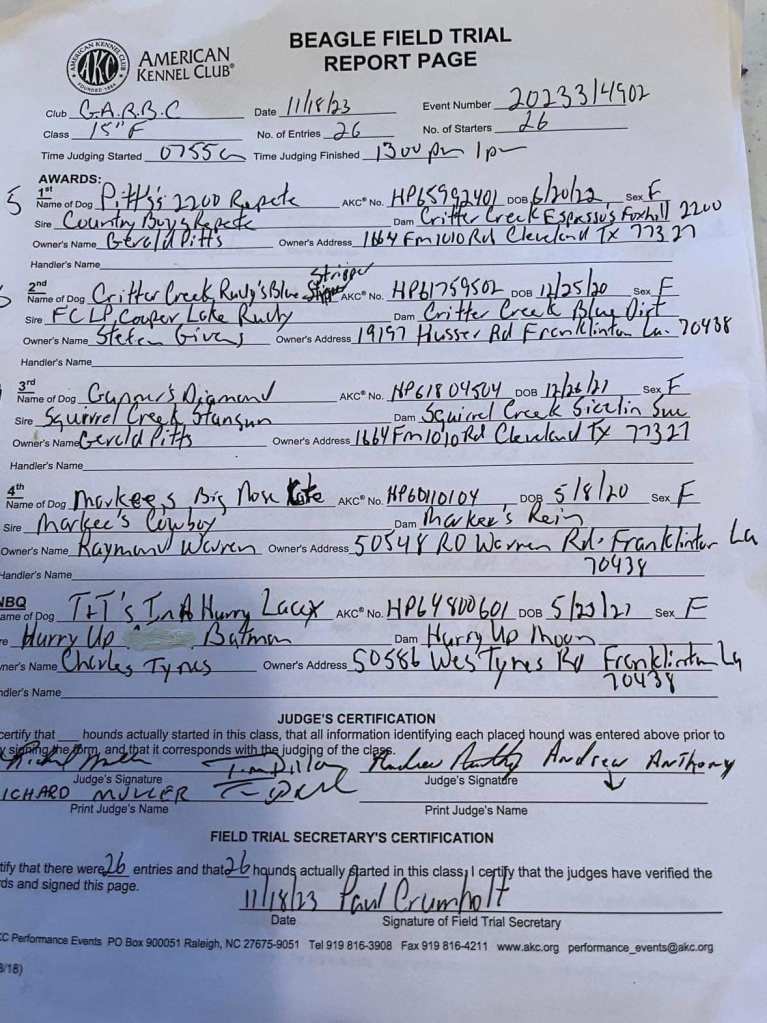 AMERICAN KENNEL CLUB
FOUNDED 1884
AKC
AMERICAN
KENNEL CLUB®
BEAGLE FIELD TRIAL
REPORT PAGE
Club G.A.R.B.C Date 11/18/23 Event Number 2023314902
Class 15" F No. of Entries 26 No. of Starters 26
Time Judging Started 0755 Time Judging Finished 1300 pm 1pm
AWARDS:
5
1st
Name of Dog Pitts's 2200 Repete AKC® No. HP65992401 DOB 6/20/22 Sex F
Sire Country Boy's Repete Dam Critter Creek Espresso's Foxhill 2200
Owner's Name Gerald Pitts Owner's Address 1664 Fm 1010 Rd Cleveland TX 77327
Handler's Name
2nd
Name of Dog Critter Creek Rudy's Blue Stripper AKC® No. HP61759502 DOB 12/25/20 Sex F
Sire FCLP, Cooper Lake Rudy Dam Critter Creek Blue Dirt
Owner's Name Steten Givens Owner's Address 19197 Husser Rd Franklinton La. 70438
Handler's Name
3rd
Name of Dog Gunner's Diamond AKC® No. HP61804504 DOB 12/26/21 Sex F
Sire Squirrel Creek Stungun Dam Squirrel Creek Sizzlin Sue
Owner's Name Gerald Pitts Owner's Address 1664 Fm 1010 Rd Cleveland TX 77327
Handler's Name
4th
Name of Dog Markee's Big Nose Kate AKC® No. HP60110104 DOB 5/8/20 Sex F
Sire Markee's Cowboy Dam Markee's Rein
Owner's Name Raymond Warren Owner's Address 50548 RO Warren Rd. Franklinton La
70438
Handler's Name
NBQ
ame of Dog T+T's In A Hurry Lacey AKC® No. HP64800601 DOB 5/23/21 Sex F
re Hurry Up Batman Dam Hurry Up Moon
ner's Name Charles Tynes Owner's Address 50586 Wes Tynes Rd Franklinton La
70438
dler's Name
JUDGE'S CERTIFICATION
certify that ___ hounds actually started in this class, that all information identifying each placed hound was entered above prior to
y signing the form, and that it corresponds with the judging of the class.
Tim Dillon Andrew Anthony Andrew Anthony
Judge's Signature Judge's Signature
ICHARD MULLER
Print Judge's Name Print Judge's Name
FIELD TRIAL SECRETARY'S CERTIFICATION
tify that there were 26 entries and that 26 hounds actually started in this class, I certify that the judges have verified the
ds and signed this page.
11/18/23 Paul Crumholt
Date Signature of Field Trial Secretary
C Performance Events PO Box 900051 Raleigh, NC 27675-9051 Tel 919 816-3908 Fax 919 816-4211 www.akc.org performance_events@akc.org
8/18)